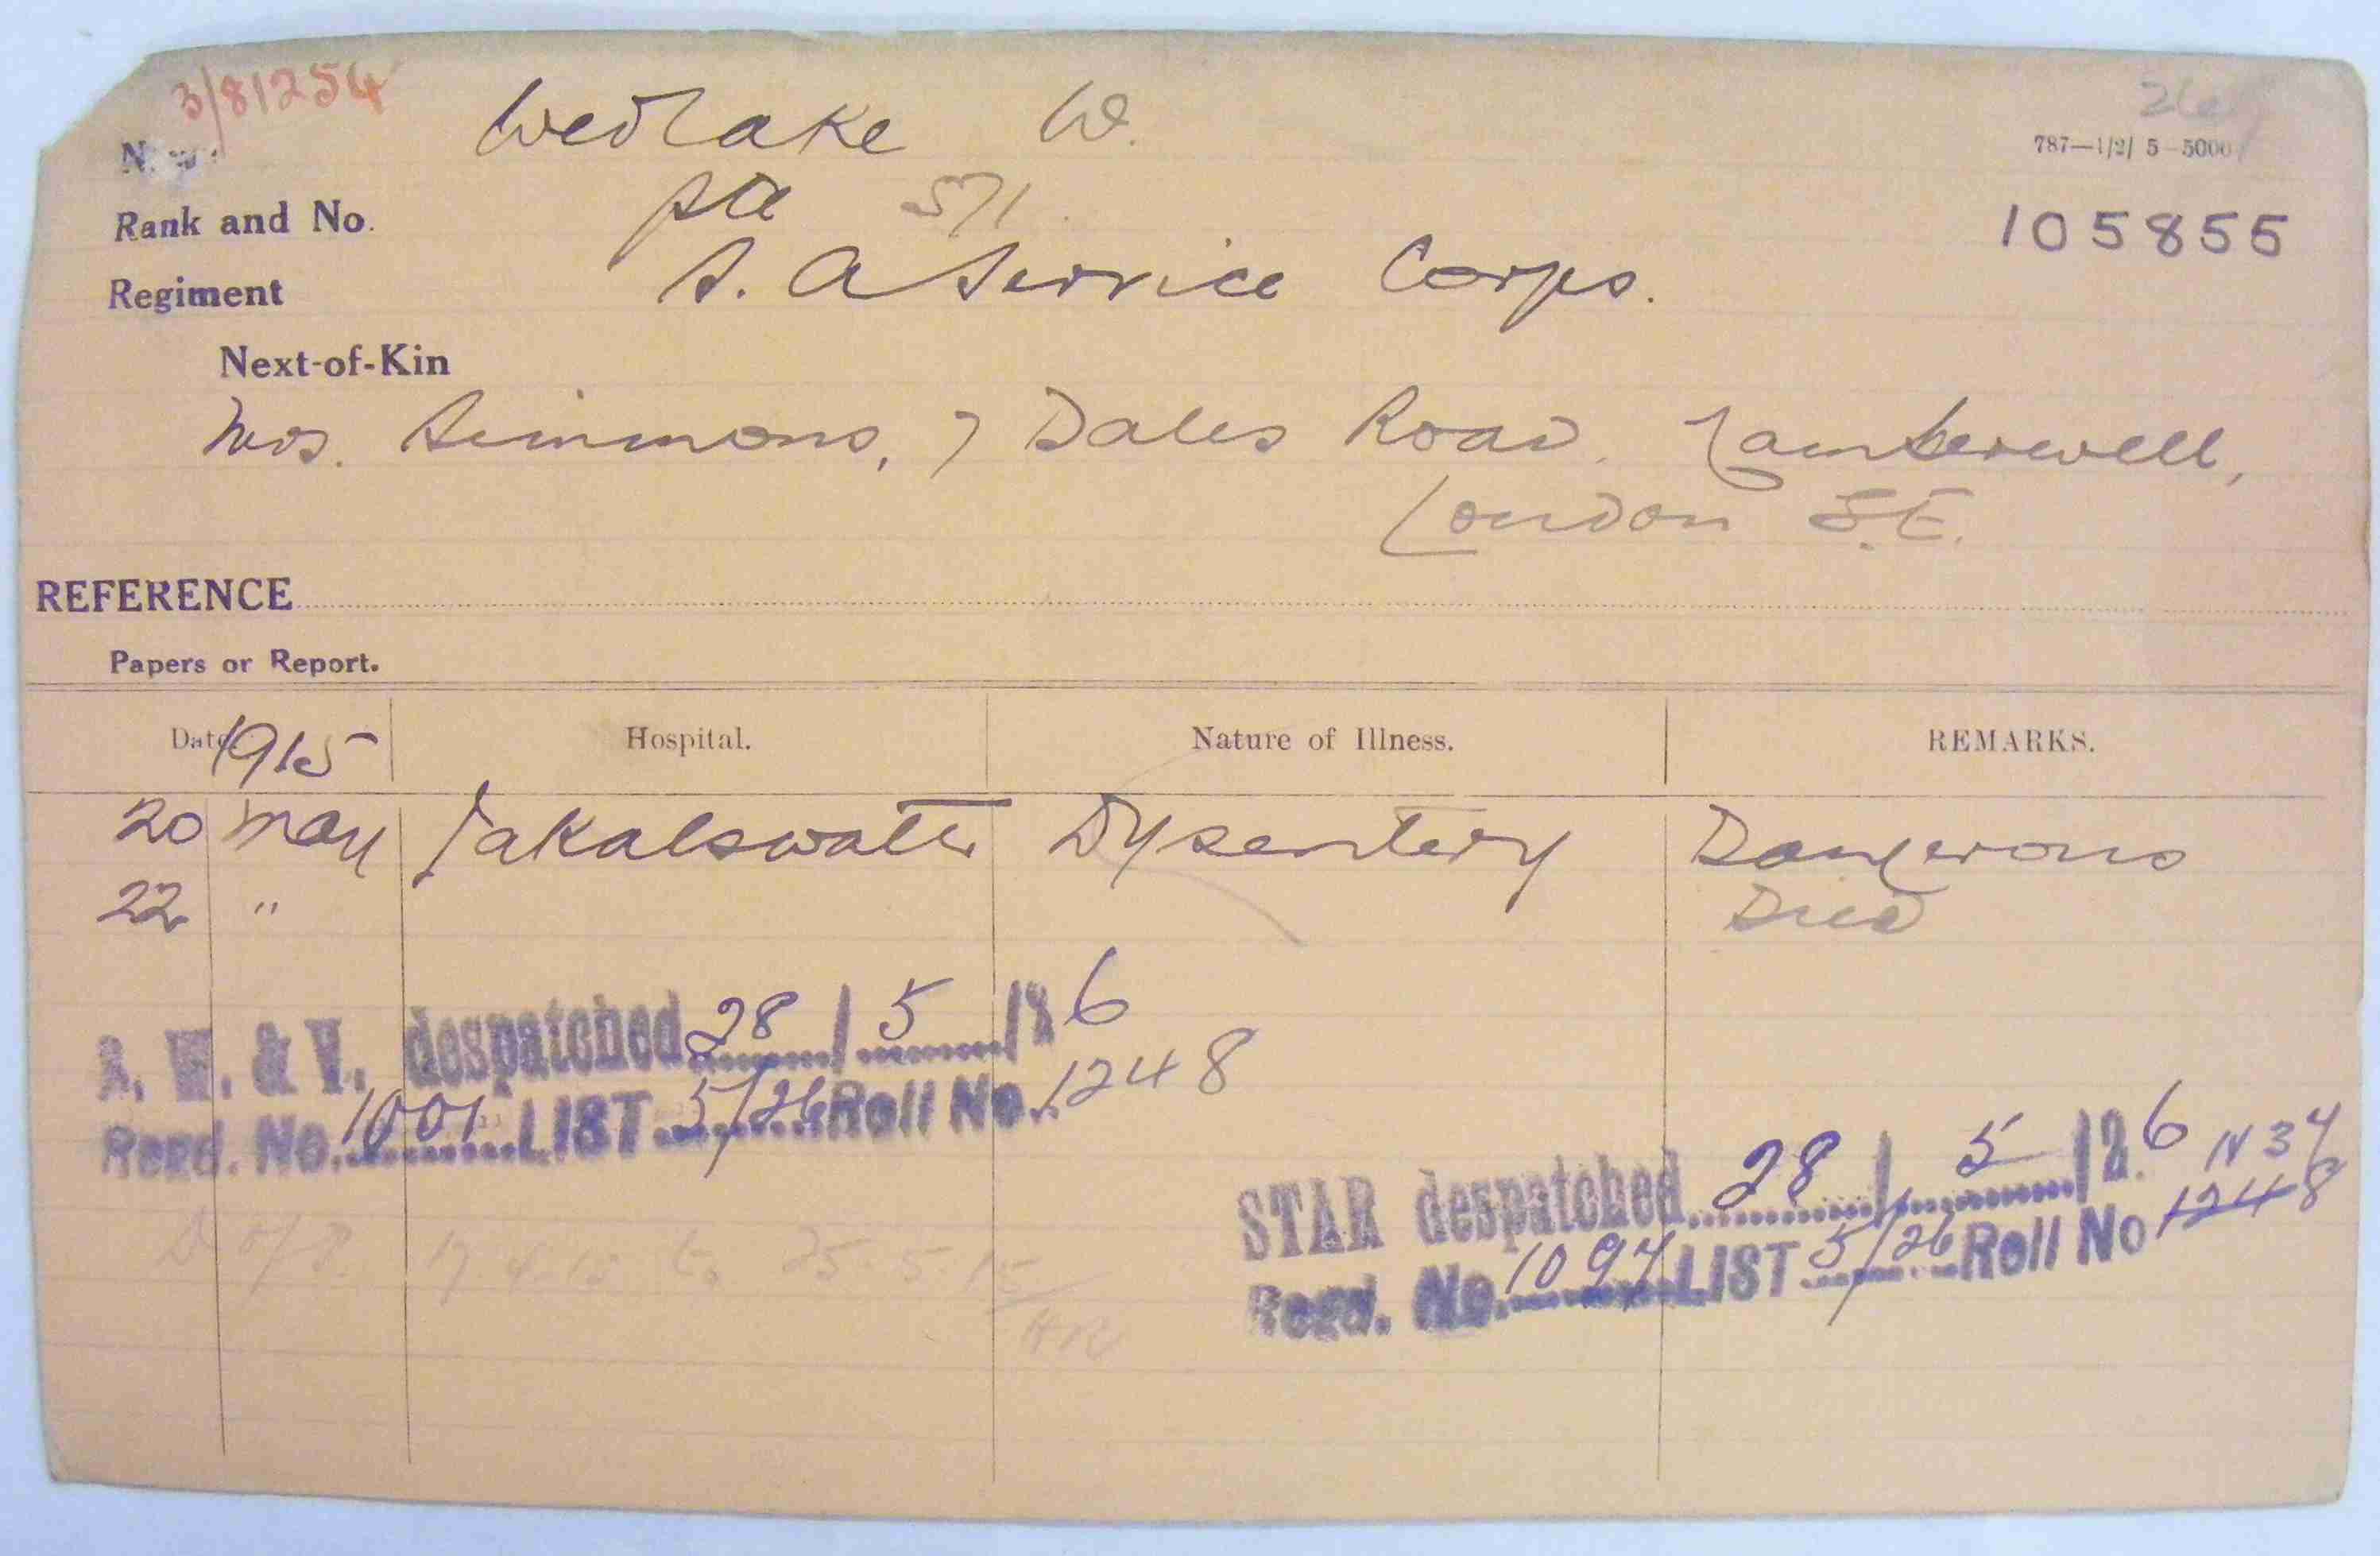 3/81254
Name Wedlake W.
787—1/2/ 5—5000
Rank and No. Pte 571.
105855
Regiment S. A Service Corps.
Next-of-Kin
Mrs. Simmons, 7 Dales Road, Camberwell,
London S.E.
REFERENCE
Papers or Report.
Date 1915 Hospital. Nature of Illness. REMARKS.
20 May Jakalswater Dysentery Dangerous
22 " Died
despatched 28 / 5 /26
Regd. No. 1001 LIST 5/26 Roll No. 1248
STAR despatched 28 / 5 /26 1134
Regd. No. 1094 LIST 5/26 Roll No 1248
17.4.15 to 25.5.15